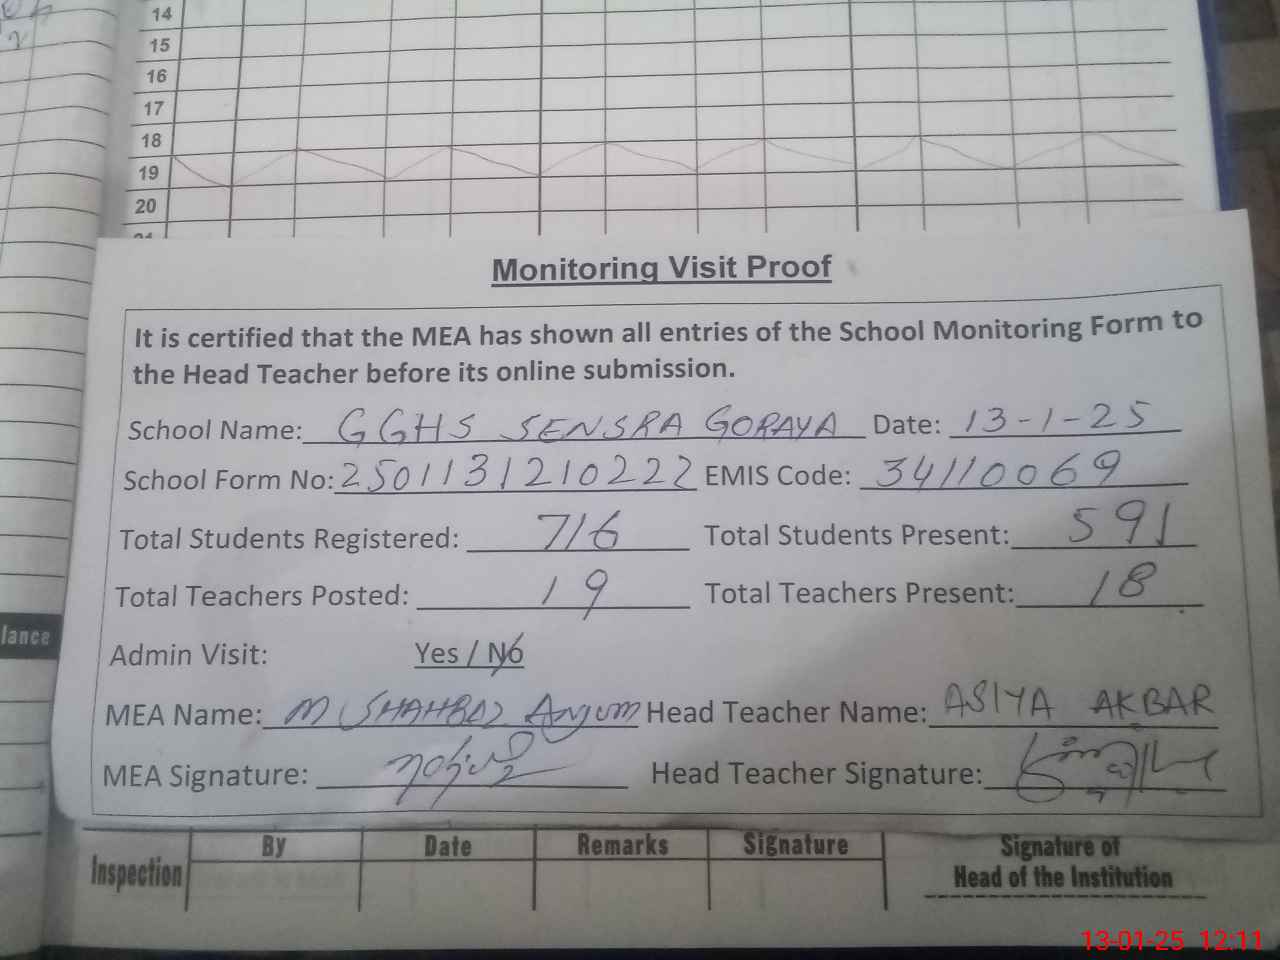 14
15
16
17
18
19
20
Monitoring Visit Proof
It is certified that the MEA has shown all entries of the School Monitoring Form to
the Head Teacher before its online submission.
School Name: GGHS SENSRA GORAYA Date: 13-1-25
School Form No: 2501131210222 EMIS Code: 34110069
Total Students Registered: 716 Total Students Present: 591
Total Teachers Posted: 19 Total Teachers Present: 18
Admin Visit: Yes / No
MEA Name: M SHAHBAZ Anjum Head Teacher Name: ASIYA AKBAR
MEA Signature: Head Teacher Signature:
lance
Inspection By Date Remarks Signature Signature of
Head of the Institution
13-01-25 12:11